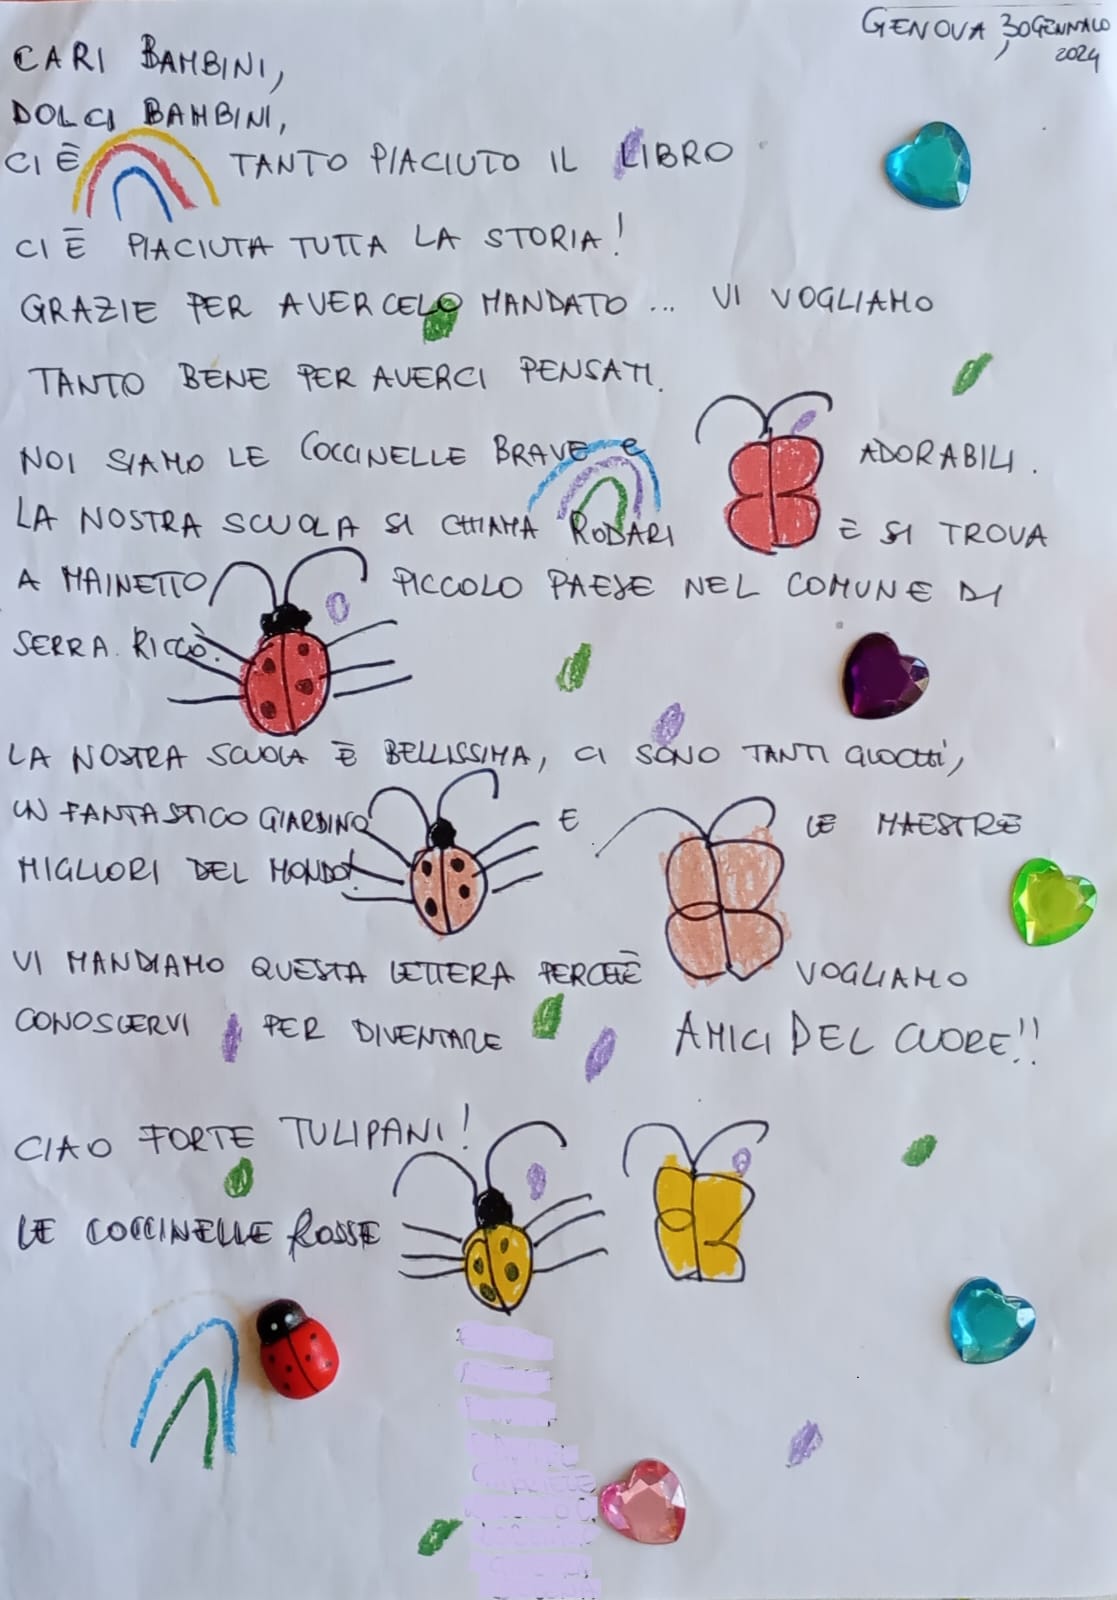 GENOVA, 30 GENNAIO
2024
CARI BAMBINI,
DOLCI BAMBINI,
CI È TANTO PIACIUTO IL LIBRO
CI È PIACIUTA TUTTA LA STORIA!
GRAZIE PER AVERCELO MANDATO... VI VOGLIAMO
TANTO BENE PER AVERCI PENSATI.
NOI SIAMO LE COCCINELLE BRAVE e ADORABILI.
LA NOSTRA SCUOLA SI CHIAMA RODARI E SI TROVA
A MAINETTO PICCOLO PAESE NEL COMUNE DI
SERRA RICCÒ.
LA NOSTRA SCUOLA È BELLISSIMA, CI SONO TANTI GIOCHI,
UN FANTASTICO GIARDINO E LE MAESTRE
MIGLIORI DEL MONDO!
VI MANDIAMO QUESTA LETTERA PERCHÈ VOGLIAMO
CONOSCERVI PER DIVENTARE AMICI DEL CUORE!!
CIAO FORTE TULIPANI!
LE COCCINELLE ROSSE